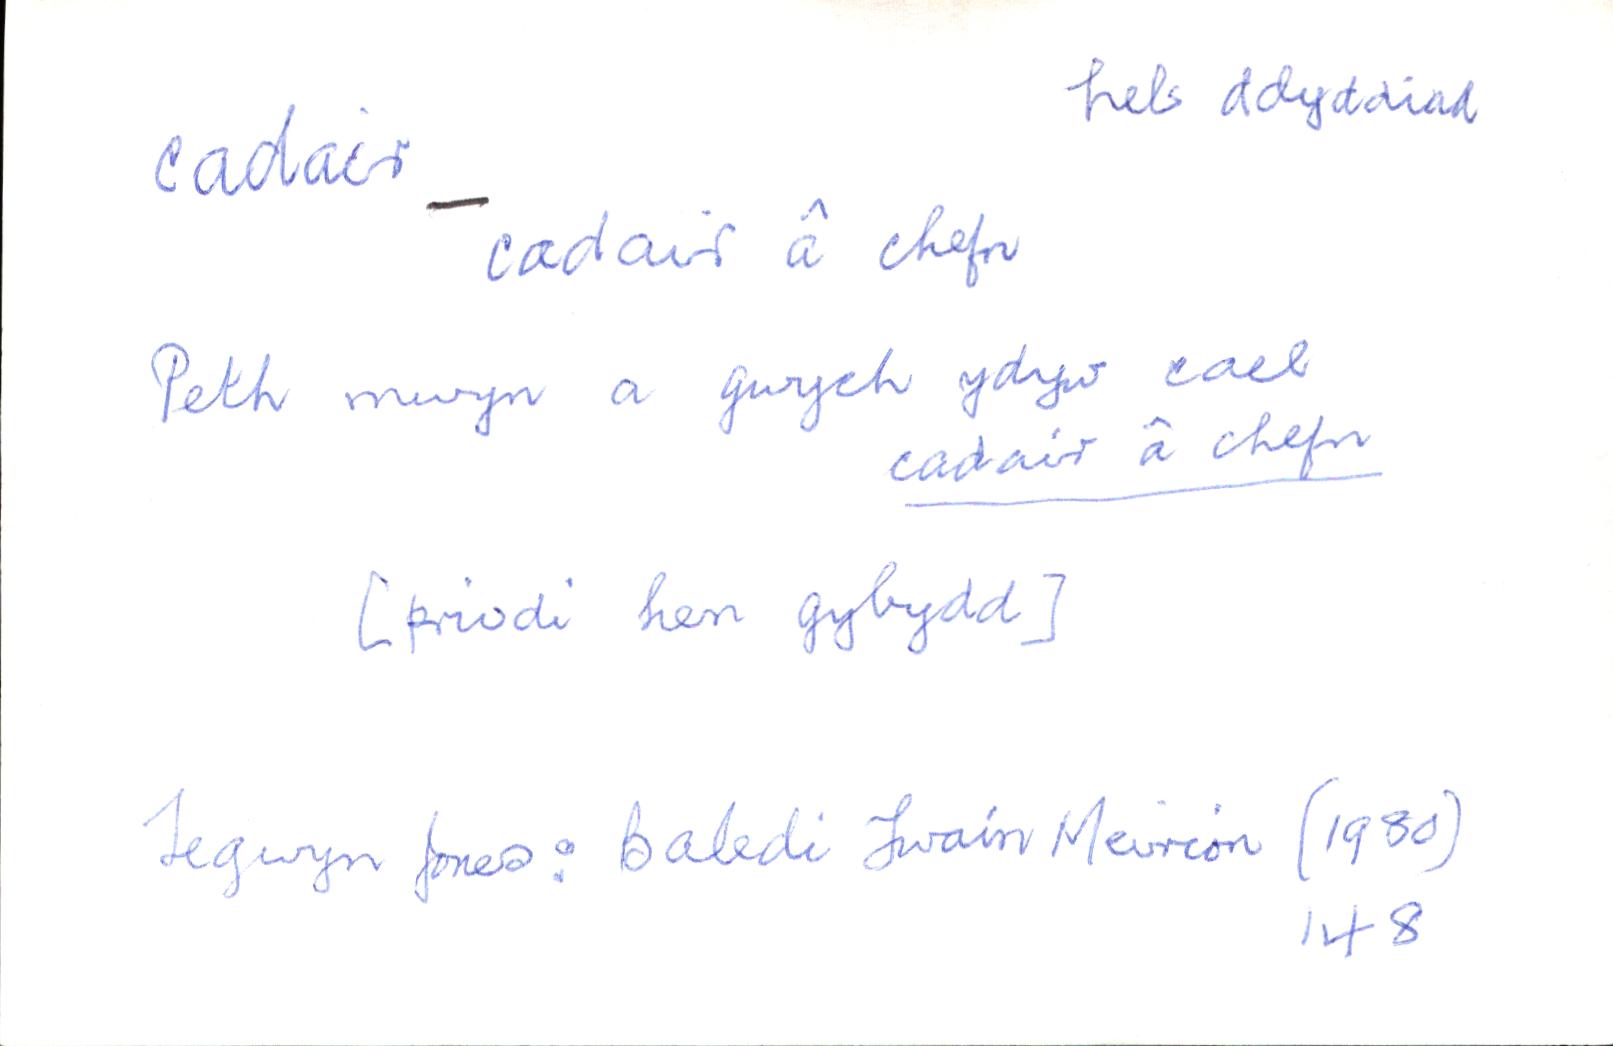 heb ddyddiad
cadair _
cadair â chefn
Peth mwyn a gwych ydyw cael
cadair â chefn
[priodi hen gybydd]
Tegwyn Jones: Baledi Ywain Meirion (1980)
148